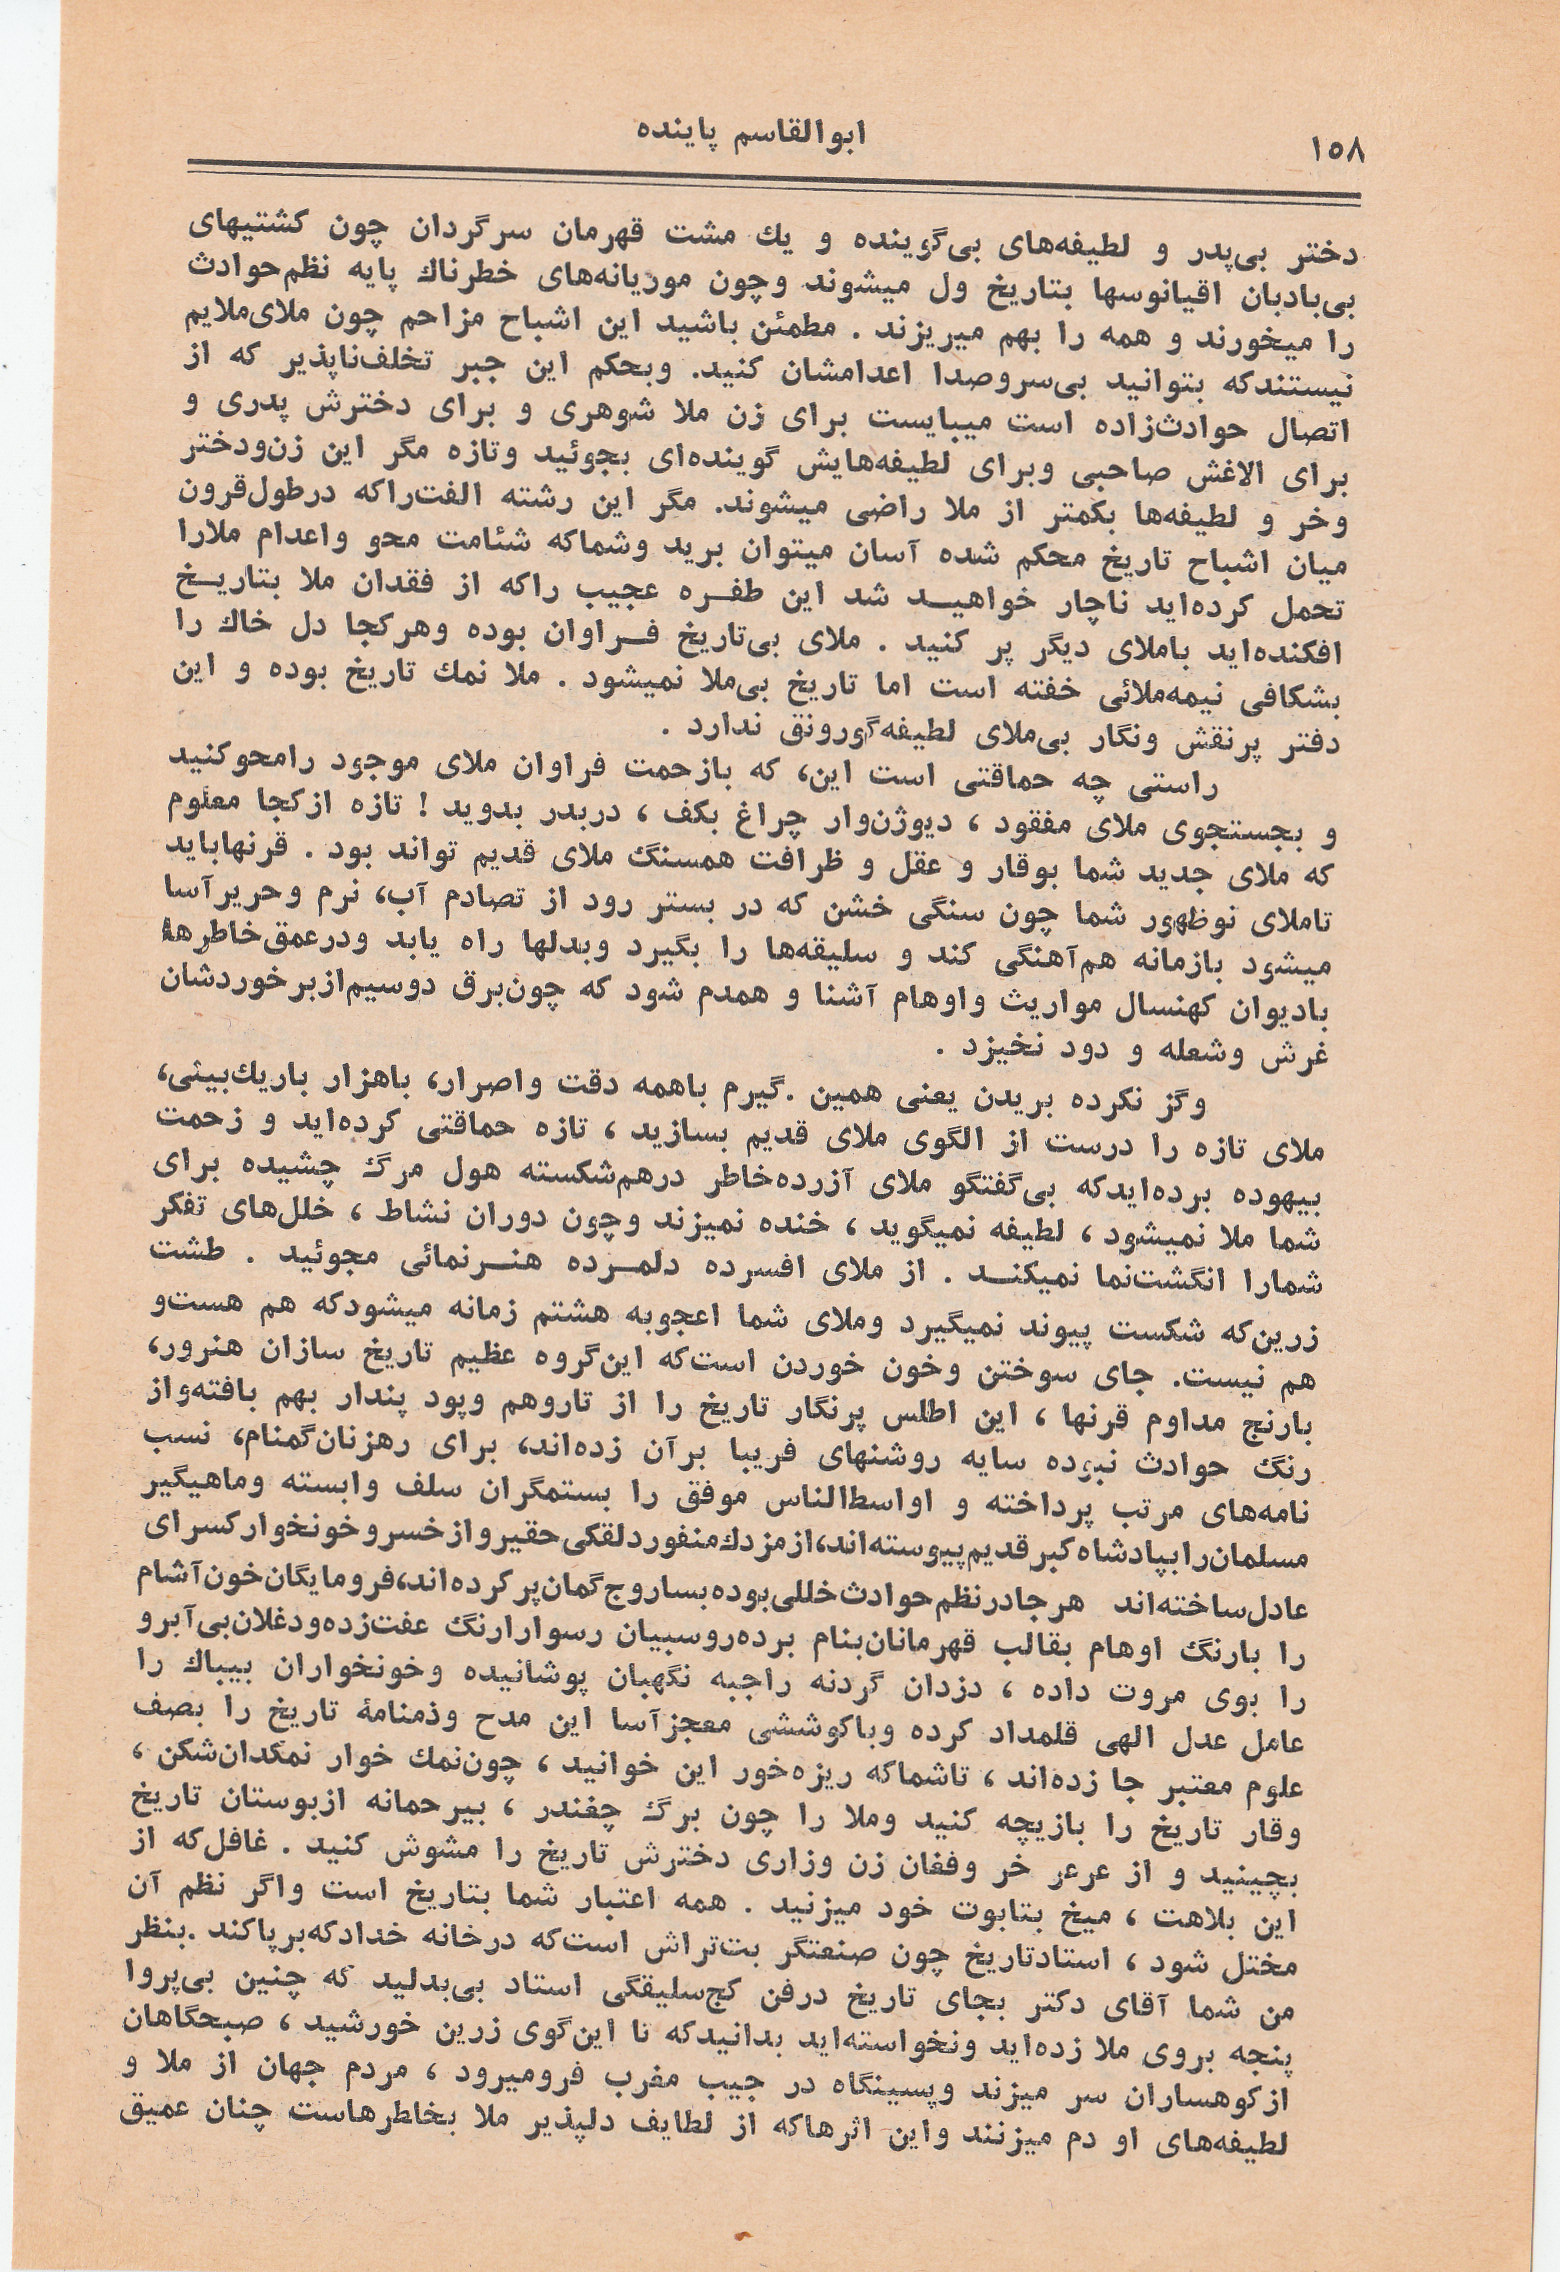 ۱۵۸
ابوالقاسم پاینده
دختر بی‌پدر و لطیفه‌های بی‌گوینده و یك مشت قهرمان سرگردان چون کشتیهای
بی‌بادبان اقیانوسها بتاریخ ول میشوند وچون موریانه‌های خطرناك پایه نظم‌حوادث
را میخورند و همه را بهم میریزند . مطمئن باشید این اشباح مزاحم چون ملای‌ملایم
نیستندکه بتوانید بی‌سروصدا اعدامشان کنید. وبحکم این جبر تخلف‌ناپذیر که از
اتصال حوادث‌زاده است میبایست برای زن ملا شوهری و برای دخترش پدری و
برای الاغش صاحبی وبرای لطیفه‌هایش گوینده‌ای بجوئید وتازه مگر این زن‌ودختر
وخر و لطیفه‌ها بکمتر از ملا راضی میشوند. مگر این رشته الفت‌راکه درطول‌قرون
میان اشباح تاریخ محکم شده آسان میتوان برید وشماکه شئامت محو واعدام ملارا
تحمل کرده‌اید ناچار خواهیـد شد این طفـره عجیب راکه از فقدان ملا بتاریـخ
افکنده‌اید باملای دیگر پر کنید . ملای بی‌تاریخ فـراوان بوده وهرکجا دل خاك را
بشکافی نیمه‌ملائی خفته است اما تاریخ بی‌ملا نمیشود . ملا نمك تاریخ بوده و این
دفتر پرنقش ونگار بی‌ملای لطیفه‌گورونق ندارد .
راستی چه حماقتی است این، که بازحمت فراوان ملای موجود رامحوکنید
و بجستجوی ملای مفقود ، دیوژن‌وار چراغ بکف ، دربدر بدوید ! تازه ازکجا معلوم
که ملای جدید شما بوقار و عقل و ظرافت همسنگ ملای قدیم تواند بود . قرنهاباید
تاملای نوظهور شما چون سنگی خشن که در بستر رود از تصادم آب، نرم وحریرآسا
میشود بازمانه هم‌آهنگی کند و سلیقه‌ها را بگیرد وبدلها راه یابد ودرعمق‌خاطرها
بادیوان کهنسال مواریث واوهام آشنا و همدم شود که چون‌برق دوسیم‌ازبرخوردشان
غرش وشعله و دود نخیزد .
وگز نکرده بریدن یعنی همین .گیرم باهمه دقت واصرار، باهزار باریك‌بینی،
ملای تازه را درست از الگوی ملای قدیم بسازید ، تازه حماقتی کرده‌اید و زحمت
بیهوده برده‌ایدکه بی‌گفتگو ملای آزرده‌خاطر درهم‌شکسته هول مرگ چشیده برای
شما ملا نمیشود ، لطیفه نمیگوید ، خنده نمیزند وچون دوران نشاط ، خلل‌های تفکر
شمارا انگشت‌نما نمیکنـد . از ملای افسرده دلمـرده هنـرنمائی مجوئید . طشت
زرین‌که شکست پیوند نمیگیرد وملای شما اعجوبه هشتم زمانه میشودکه هم هست‌و
هم نیست. جای سوختن وخون خوردن است‌که این‌گروه عظیم تاریخ سازان هنرور،
بارنج مداوم قرنها ، این اطلس پرنگار تاریخ را از تاروهم وپود پندار بهم بافته‌واز
رنگ حوادث نبوده سایه روشنهای فریبا برآن زده‌اند، برای رهزنان‌گمنام، نسب
نامه‌های مرتب پرداخته و اواسط‌الناس موفق را بستمگران سلف وابسته وماهیگیر
مسلمان‌رابپادشاه‌کبرقدیم‌پیوسته‌اند،ازمزدك‌منفوردلقکی‌حقیروازخسروخونخوارکسرای
عادل‌ساخته‌اند هرجادرنظم‌حوادث‌خللی‌بوده‌بساروج‌گمان‌پرکرده‌اند،فرومایگان‌خون‌آشام
را بارنگ اوهام بقالب قهرمانان‌بنام برده‌روسبیان رسوارارنگ عفت‌زده‌ودغلان‌بی‌آبرو
را بوی مروت داده ، دزدان گردنه راجبه نگهبان پوشانیده وخونخواران بیباك را
عامل عدل الهی قلمداد کرده وباکوششی معجزآسا این مدح وذمنامهٔ تاریخ را بصف
علوم معتبر جا زده‌اند ، تاشماکه ریزه‌خور این خوانید ، چون‌نمك خوار نمکدان‌شکن ،
وقار تاریخ را بازیچه کنید وملا را چون برگ چغندر ، بیرحمانه ازبوستان تاریخ
بچینید و از عرعر خر وفغان زن وزاری دخترش تاریخ را مشوش کنید . غافل‌که از
این بلاهت ، میخ بتابوت خود میزنید . همه اعتبار شما بتاریخ است واگر نظم آن
مختل شود ، استادتاریخ چون صنعتگر بت‌تراش است‌که درخانه خدادکه‌برپاکند .بنظر
من شما آقای دکتر بجای تاریخ درفن کج‌سلیقگی استاد بی‌بدلید که چنین بی‌پروا
پنجه بروی ملا زده‌اید ونخواسته‌اید بدانیدکه تا این‌گوی زرین خورشید ، صبحگاهان
ازکوهساران سر میزند وپسینگاه در جیب مغرب فرومیرود ، مردم جهان از ملا و
لطیفه‌های او دم میزنند واین اثرهاکه از لطایف دلپذیر ملا بخاطرهاست چنان عمیق